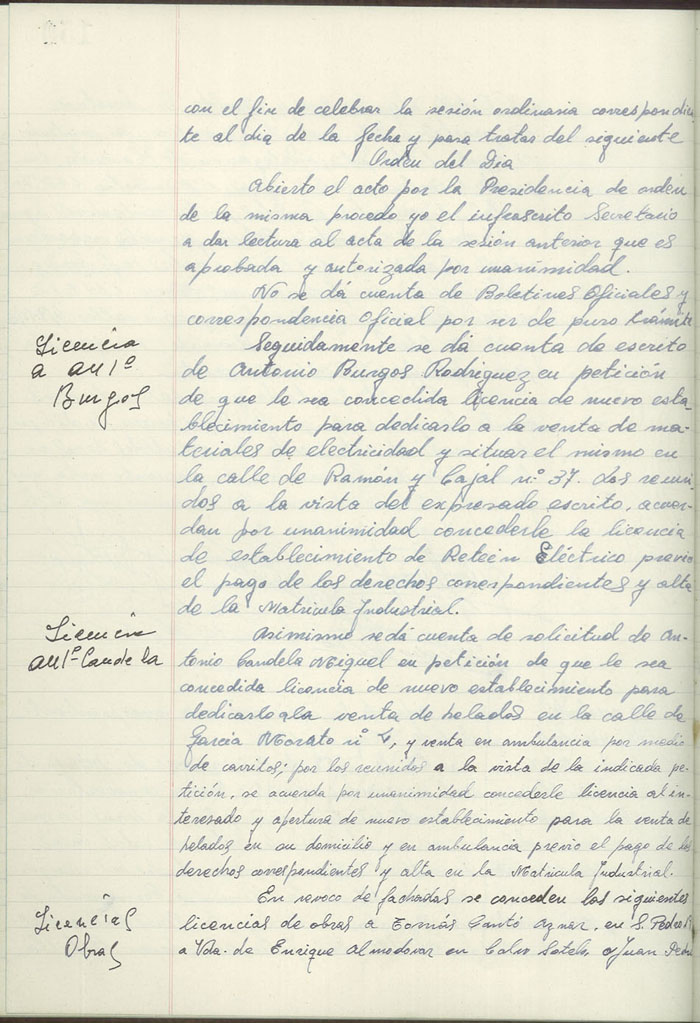 con el fin de celebrar la sesión ordinaria correspondien
te al dia de la fecha y para tratar del siguiente
Orden del Dia
Abierto el acto por la Presidencia de orden
de la misma procedo yo el infrascrito Secretario
a dar lectura al acta de la sesión anterior que es
aprobada y autorizada por unanimidad.
No se dá cuenta de Boletines Oficiales y
correspondencia Oficial por ser de puro trámite
Licencia
a Antº
Burgos
Seguidamente se dá cuenta de escrito
de Antonio Burgos Rodriguez en petición
de que le sea concedida licencia de nuevo esta
blecimiento para dedicarlo a la venta de ma-
teriales de electricidad y situar el mismo en
la calle de Ramón y Cajal n.º 37. Los reuni-
dos a la vista del expresado escrito, acuer-
dan por unanimidad concederle la licencia
de establecimiento de Eléctrico previo
el pago de los derechos correspondientes y alta
de la Matricula Industrial.
Licencia
Antº Candela
Asimismo se dá cuenta de solicitud de An-
tonio Candela Miguel en petición de que le sea
concedida licencia de nuevo establecimiento para
dedicarlo a la venta de helados en la calle de
Garcia Morato nº, y venta en ambulancia por medio
de carritos; por los reunidos a la vista de la indicada pe-
tición, se acuerda por unanimidad concederle licencia al in-
teresado y apertura de nuevo establecimiento para la venta de
helados en su domicilio y en ambulancia previo el pago de los
derechos correspondientes y alta en la Matricula Industrial.
Licencias
Obras
En revoco de fachadas se conceden las siguientes
licencias de obras a Tomás Cantó Aznar, en S. Pedro
a Vda. de Enrique Almodovar en Calvo Sotelo, a Juan Pedro